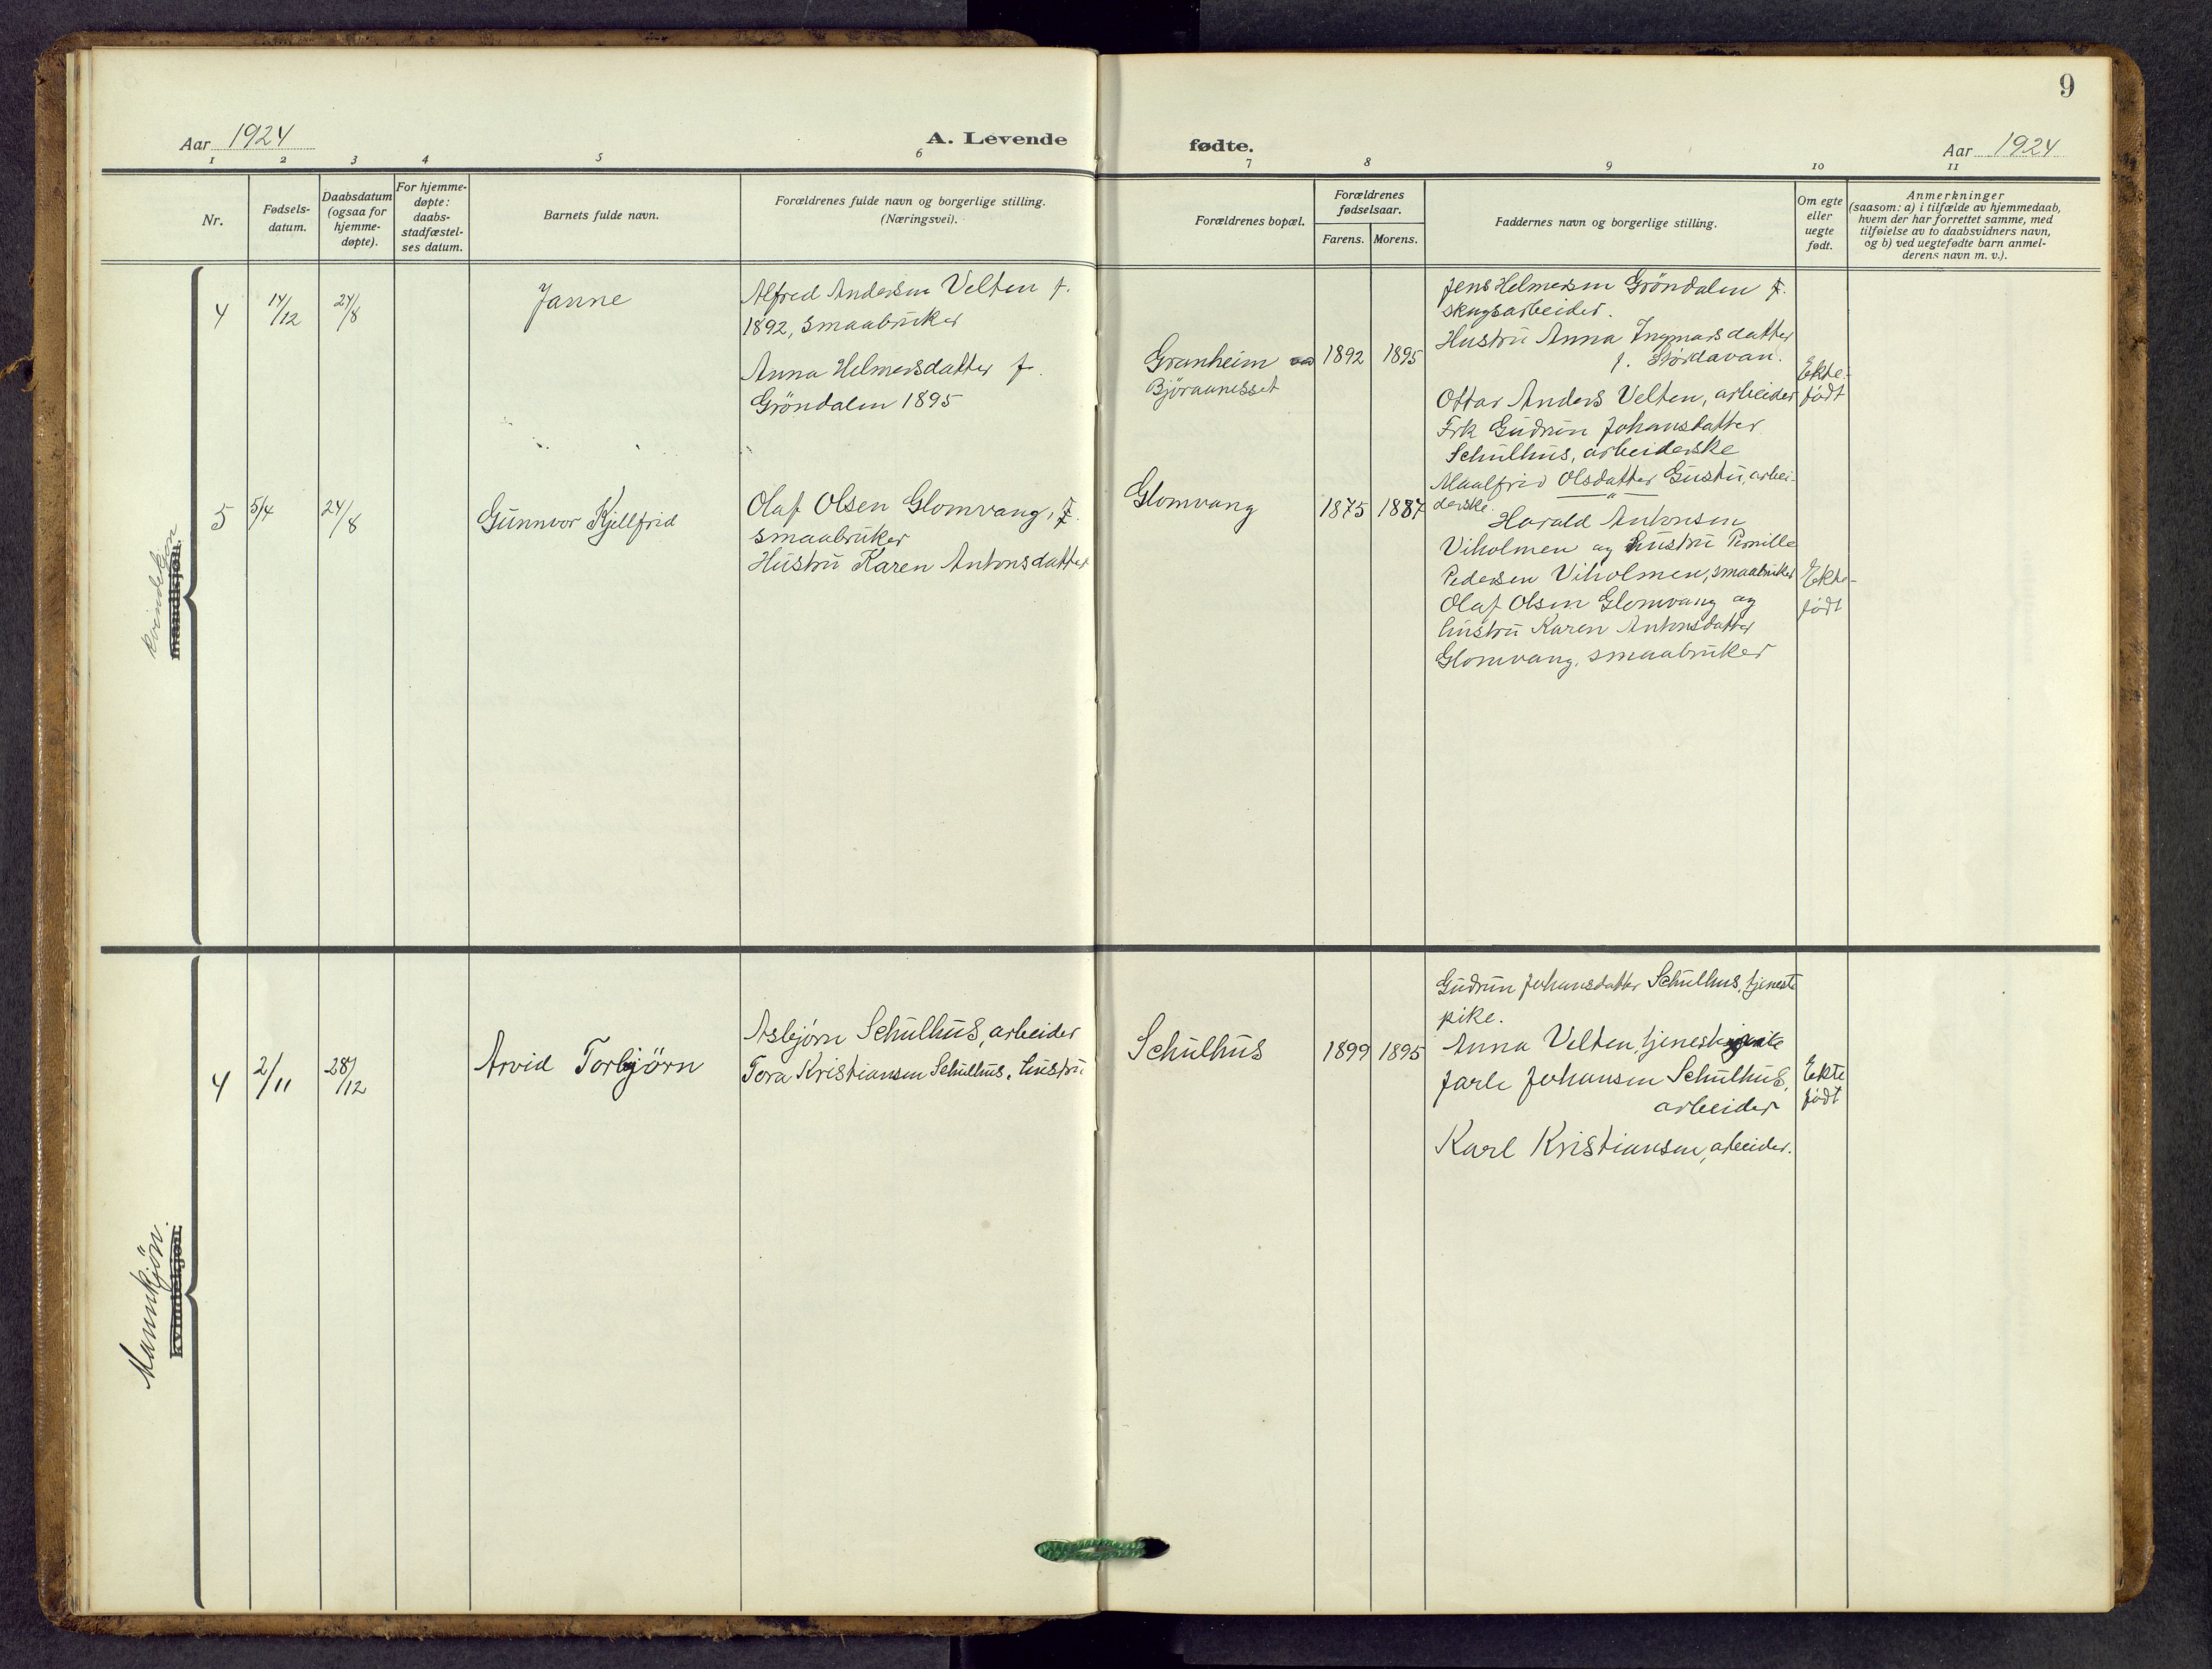 9
Aar 1924
A. Levende
fødte.
Aar 1924
1 2 3 4 5 6 7 8 9 10 11
Nr.
Fødsels-
datum.
Daabsdatum
(ogsaa for
hjemme-
døpte).
For hjemme-
døpte:
daabs-
stadfæstel-
ses datum.
Barnets fulde navn.
Forældrenes fulde navn og borgerlige stilling.
(Næringsvei).
Forældrenes bopæl.
Forældrenes
fødselsaar.
Farens. Morens.
Faddernes navn og borgerlige stilling.
Om egte
eller
uegte
født.
Anmerkninger
(saasom: a) i tilfælde av hjemmedaab,
hvem der har forrettet samme, med
tilføielse av to daabsvidners navn,
og b) ved uegtefødte barn anmel-
derens navn m. v.).
kvindekjøn
mandkjøn.
4
14/12
24/8
Janne
Alfred Andersen Velten f.
1892, smaabruker
Anna Helmersdatter f.
Gröndalen 1895
Granheim
Björaanesset
1892
1895
Jens Helmersen Gröndalen f.
skogsarbeider.
Hustru Anna Ingmarsdatter
f. Stördavan.
Ottar Anders Velten, arbeider
Frk Gudrun Johansdatter
Schulhus, arbeiderske
Maalfrid Olsdatter Gustu, arbei-
derske.
Ekte-
født
5
5/4
24/8
Gunnvor Kjellfrid
Olaf Olsen Glomvang, f.
smaabruker
Hustru Karen Antonsdatter
Glomvang
1875
1887
Harald Antonsen
Viholmen og hustru Pernille
Pedersen Viholmen, smaabruker
Olaf Olsen Glomvang og
hustru Karen Antonsdatter
Glomvang, smaabruker
Ekte-
født
Mannkjön.
kvindekjøn.
4
2/11
28/12
Arvid Torbjörn
Asbjörn Schulhus, arbeider
Tora Kristiansen Schulhus, hustru
Schulhus
1899
1895
Gudrun Johansdatter Schulhus, tjeneste
pike.
Anna Velten, tjenestepike
Jarle Johansen Schulhus,
arbeider
Karl Kristiansen, arbeider.
Ekte
født